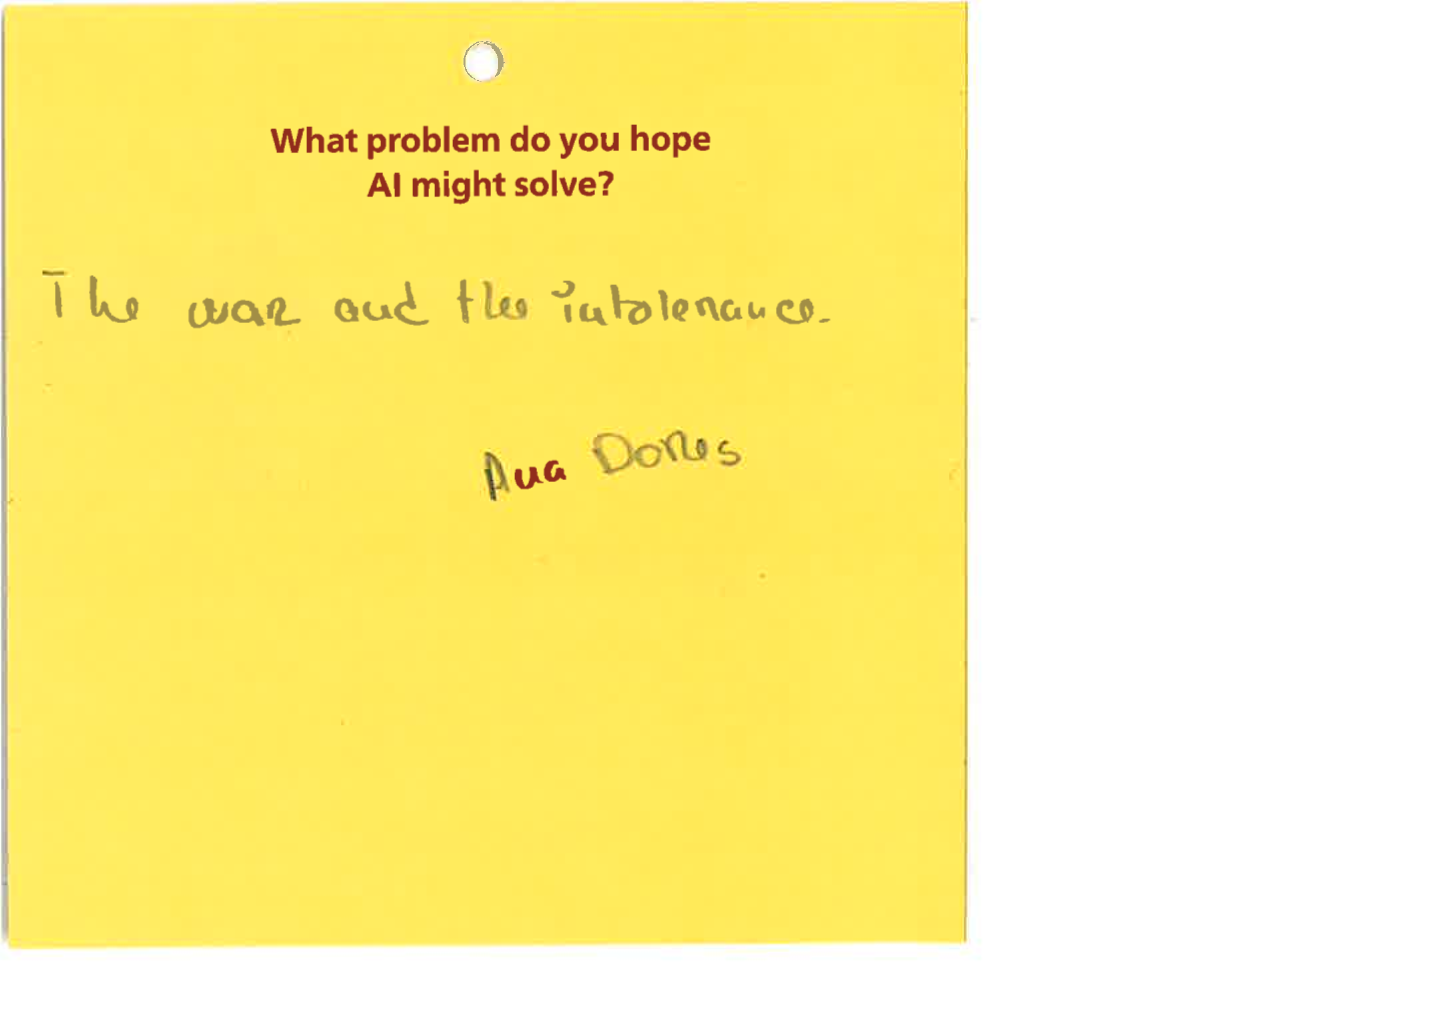 What problem do you hope
AI might solve?
The war and the intolerance.
Ana Dores